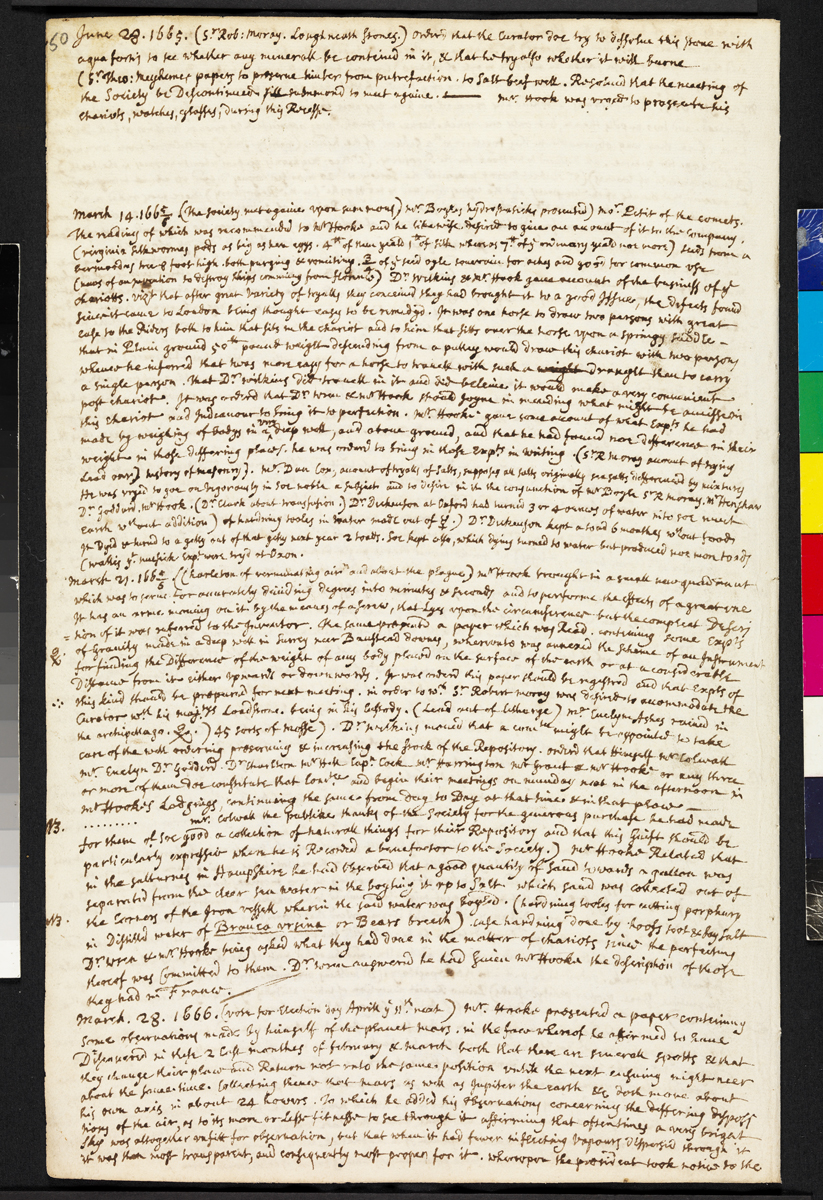 60 June 28. 1665. (Sr. Rob: moray. Lough neath stones.) orderd that the Curator doe try to dissolve this stone with
aqua fortis to see whether any minerall be conteind in it, & that he try also whether it will burne
(Sr. Theo: Mayhernes papers to preserve timber from putrefaction. to Salt beef well. Resolued that the meeting of
the Society be Discontinued till summond to meet againe. —— mr. Hook was vrged to prosecute his
chariots, watches, glasses, during this Recesse.
March 14. 166 5/6 (the society met againe vpon summons) mr. Boyles hydrostaticks presented) mor. Petit of the comets.
The reading of which was recommended to mr Hooke and he likewise desired to giue an account of it to the Company.
(virginia silkwormes pods as big as hen eggs. of ordinary yeald not more) seeds from a
barmoodas tree 9 foot high. both purging & vomiting. good for common use
(news of an invention to distroy ships comming from) Dr. wilkins & mr. Hook gaue account of the business of ye
chariotts. vizt that after great variety of tryalls they conceiued they had brought it to a good issue, the defects found
since it came to London being thought easy to be remedyd. It was one horse to draw two persons with great
ease to the Riders both to him that sits in the chariot and to him that sitts over the horse upon a springy saddle -
that in plain ground 50 pound weight descending from a pully would draw this chariot with two persons,
whence he inferred that twas more easy for a horse to travele with such a draught than to carry
a single person. That Dr. wilkins did trauell in it and did beleive it would make a very convenient
post chariot. It was orderd that Dr wren & mr Hook should joyne in mending what might be amisse in
this chariot and Indeavour to bring it to perfection. mr. Hooke gaue some account of what Expts he had
made by weighing of bodys in a very deep well, and aboue ground, and that he had found noe difference in their
weight in those differing places. he was orderd to bring in those Expts in writing. (Sr R moray account of trying
Lead ore) history of masonry). mr. Dan Cox, account of tryalls of salts, supposes all salts originally sea salts differenced by mixture
He was vrgd to goe on vigorously in soe noble a subject and to desire in it the conjunction of mr Boyle Sr R moray, mr Henshaw
Dr. Goddard, mr Hook. (Dr. Clark about transfusion.) Dr Dickenson at Oxford had turned 3 or 4 ounces of water into soe much
Earth without addition) of hardning tooles in water made out of.) Dr Dickenson kept a toad 6 monthes without foode
It Dyed & turnd to a gelly out of that gelly next year 2 toads. Soe kept also, which dying turned to water but produced noe more toads
(wallis musick Expt were tryd at Oxon.
March 21. 166 5/6 ((Charleton of verminating air and about the plague) mr Hook brought in a small new quadrant
which was to serue for accurately diuiding degrees into minutes & seconds and to performe the effects of a great one
It has an arme mouing on it by the meanes of a screw, that lyes vpon the circumference but the compleat descrip
= tion of it was referred to the Inventor. the same presented a paper which was Read. conteining some Expts
of Gravity made in a deep well in Surry neer Banstead downes, wherevnto was annexed the scheme of an Instrument
for finding the Difference of the weight of any body placed on the surface of the earth or at a considerable
Distance from it either upwards or downwards. It was orderd this paper should be registred and that Expts of
this kind should be prepared for next meeting. in order to wch. Sr. Robert moray was desired to accommodate the
Curator with his majtys Loadstone. being in his custody. (Lead out of Litharge) mr Evelyn Ashes rained in
the archipelago.) 45 sorts of mosse). Dr. wilkins moued that a comtee might be appointed to take
care of the well ordering preserving & increasing the stock of the Repository. orderd that Himself mr. Colwall
mr. Evelyn Dr. Goddard. Dr Charlton mr Hill Capt. Cock mr. Harrington mr. Graunt & mr Hooke or any three
or more of them doe constitute that comtee and begin their meetings on munday next in the afternoon in
mr Hookes Lodgings, continuing the same from day to Day at that time & in that place —
NB. ......... mr. Colwall the publike thanks of the Society for the generous purchase he had made
for them of soe good a collection of naturall things for their Repository and that this Guift should be
particularly expressed when he is Recorded a benefactor to the Society.) mr Hooke Related that
in the saltworks in Hampshire he had observed that a good quantity of sand towards a gallon was
separated from the clear sea water in the boyling it up to Salt. which sand was collected out of
NB. the corners of the Iron vessell wherein the said water was boyled. (hardning tooles for cutting porphyry
in Distilld water of Branca vrsina or Bears breech). case hardning done by hoofs soot & bay salt
Dr. wren & mr. Hooke being asked what they had done in the matter of chariots since the perfecting
thereof was Committed to them. Dr. wren answered he had given mr Hooke the description of those
they had in France.
March. 28. 1666. (vote for Election day Aprill ye 11th. next) mr. Hooke presented a paper conteining
some observations made by himself of the planet mars. in the face whereof he affirmed to haue
Discouered in these 2 last monthes of february & march both that there are seuerall spotts & that
they change their place and Return not vnto the same position vntill the next ensuing night neer
about the same time. Collecting thence that mars as well as Jupiter the earth &c. doth moue about
his own axis in about 24 howers. To which he added his observations concerning the differing disposi
tions of the air, as to its more or Lesse fitnesse to see through it affirming that oftentimes a very bright
skey was altogether vnfitt for observation, but that when it had fewer inflecting vapours dispersed through it
it was then most transparent, and consequently most proper for it. wherevpon the president took notice to the